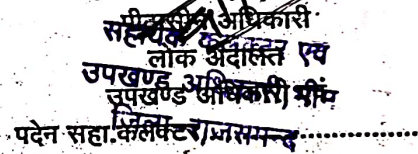 पीठासीन अधिकारी
सहायक कलक्टर एवं
लोक अदालत
उपखण्ड अधिकारी, भीम
उपखण्ड अधिकारी, भीम
जिला राजसमन्द
पदेन सहा.कलेक्टर,